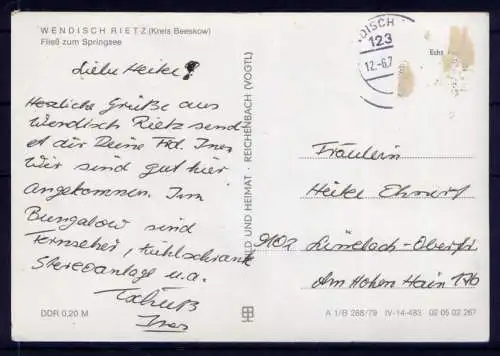 WENDISCH RIETZ (Kreis Beeskow)
Fließ zum Springsee
Liebe Heike!
Herzliche Grüße aus
Wendisch Rietz send
et dir Deine Frd. Ines
Wir sind gut hier
angekommen. Im
Bungalow sind
Fernseher, Kühlschrank
Stereoanlage u.a.
Tschüß
Ines
DDR 0,20 M
BILD UND HEIMAT · REICHENBACH (VOGTL)
DISCH
123
12.-6.7
Echt
Fräulein
Heike Ehnert
9102 Limbach-Oberfr
Am Hohen Hain 17b
A 1/B 288/79 IV-14-483 02 05 02 267